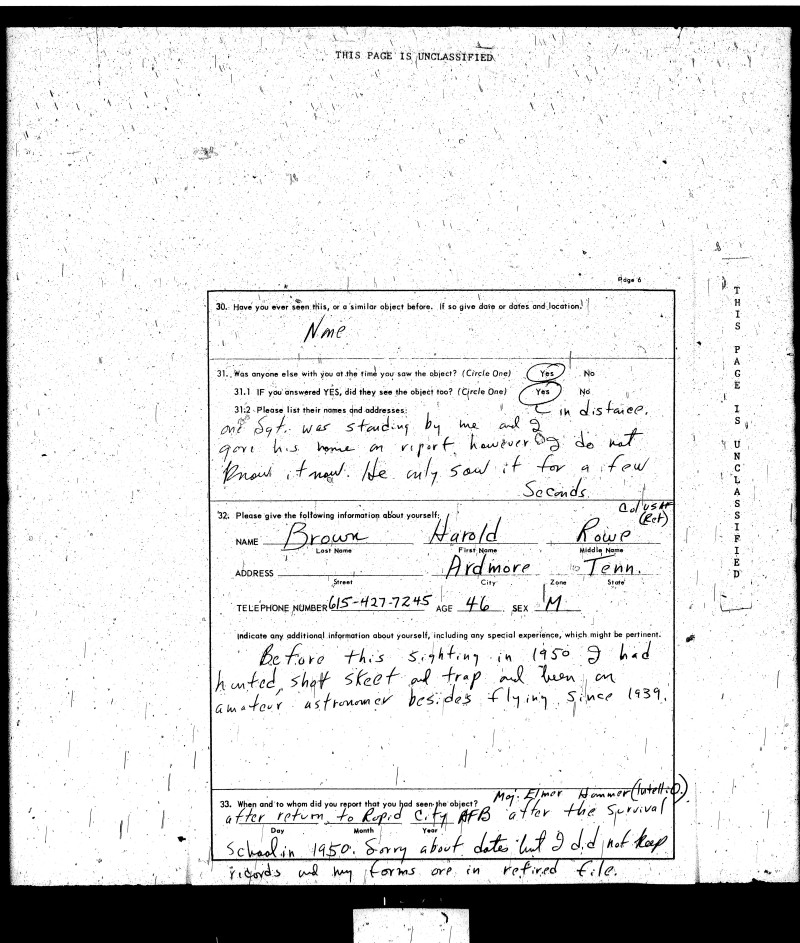 THIS PAGE IS UNCLASSIFIED
Page 6
30. Have you ever seen this, or a similar object before. If so give date or dates and location.
None
31. Was anyone else with you at the time you saw the object? (Circle One) Yes No
31.1 IF you answered YES, did they see the object too? (Circle One) Yes No
31.2 Please list their names and addresses: in distance.
one Sgt. was standing by me and I
gave his name on report however I do not
know it now. He only saw it for a few
Seconds.
32. Please give the following information about yourself: Col USAF
(Ret)
NAME Brown Harold Rowe
Last Name First Name Middle Name
ADDRESS Ardmore Tenn.
Street City Zone State
TELEPHONE NUMBER 615-427-7245 AGE 46 SEX M
Indicate any additional information about yourself, including any special experience, which might be pertinent.
Before this sighting in 1950 I had
hunted, shot skeet and trap and been an
amateur astronomer besides flying since 1939.
Maj. Elmer Hammer (Intell. O.)
33. When and to whom did you report that you had seen the object?
after return to Rapid City AFB after the survival
Day Month Year
School in 1950. Sorry about dates but I did not keep
records and my forms are in retired file.
THIS PAGE IS UNCLASSIFIED